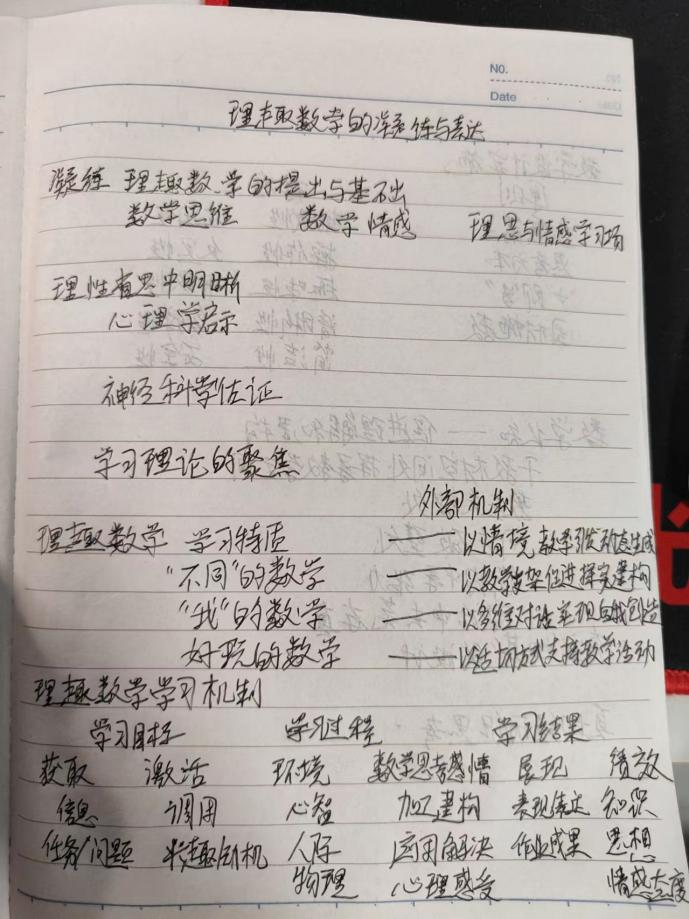 NO.
Date
理趣数学的凝练与表达
凝练 理趣数学的提出与基础
数学思维 数学情感 理思与情感学习场
理性省思中明晰
心理学启示
神经科学佐证
学习理论的聚焦
外部机制
理趣数学 学习特质 —— 以情境教学引发动态生成
"不同"的数学 —— 以教学支架促进探究建构
"我"的数学 —— 以多维对话实现自我创造
好玩的数学 —— 以适切方式支持教学活动
理趣数学学习机制
学习目标 学习过程 学习结果
获取 激活 环境 数学思考感情 展现 绩效
信息 调用 心智 加工建构 表现表达 知识
任务/问题 兴趣动机 人际 应用解决 作业成果 思想
物理 心理感受 情感态度